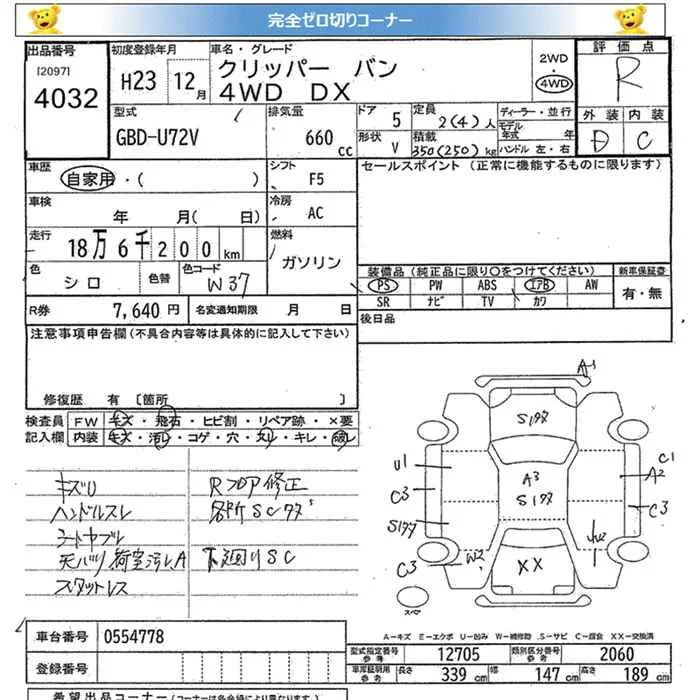 完全ゼロ切りコーナー
出品番号
[2097]
4032
初度登録年月
H23 12月
車名・グレード
クリッパー バン
4WD DX
2WD
4WD
評価点
R
外装 内装
D C
型式
GBD-U72V
排気量
660 cc
ドア 5
形状 V
定員 2(4)人
積載 350(250)kg
ディーラー・並行
モデル年式 年
ハンドル 左・右
車歴
自家用・( )
シフト F5
セールスポイント (正常に機能するものに限ります)
車検
年 月( 日)
冷房 AC
走行
18万6千200km
燃料
ガソリン
色 シロ
色替
色コード W37
装備品(純正品に限り○をつけてください)
新車保証書
PS PW ABS エアB AW
SR ナビ TV カワ
有・無
R券 7,640円
名変通知期限 月 日
後日品
注意事項申告欄(不具合内容等は具体的に記入して下さい)
修復歴 有 [箇所 ]
検査員 FW キズ・飛石・ヒビ割・リペア跡・×要
記入欄 内装 キズ・汚レ・コゲ・穴・スレ・キレ・破レ
キズU
ハンドルスレ
シートヤブレ
天バリ荷室汚レA
スタットレス
Rフロア修正
各所SCサス
下廻りSC
A1
Sササ
U1
C3
Sササ
C3
W2
A3
Sササ
XX
C1
A2
C3
スペア
A-キズ E-エクボ U-凹み W-補修跡 S-サビ C-腐食 XX-交換済
車台番号 0554778
登録番号
型式指定番号 参考 12705
類別区分番号 参考 2060
車庫証明用 参考 長さ 339cm 幅 147cm 高さ 189cm
希望出品コーナー